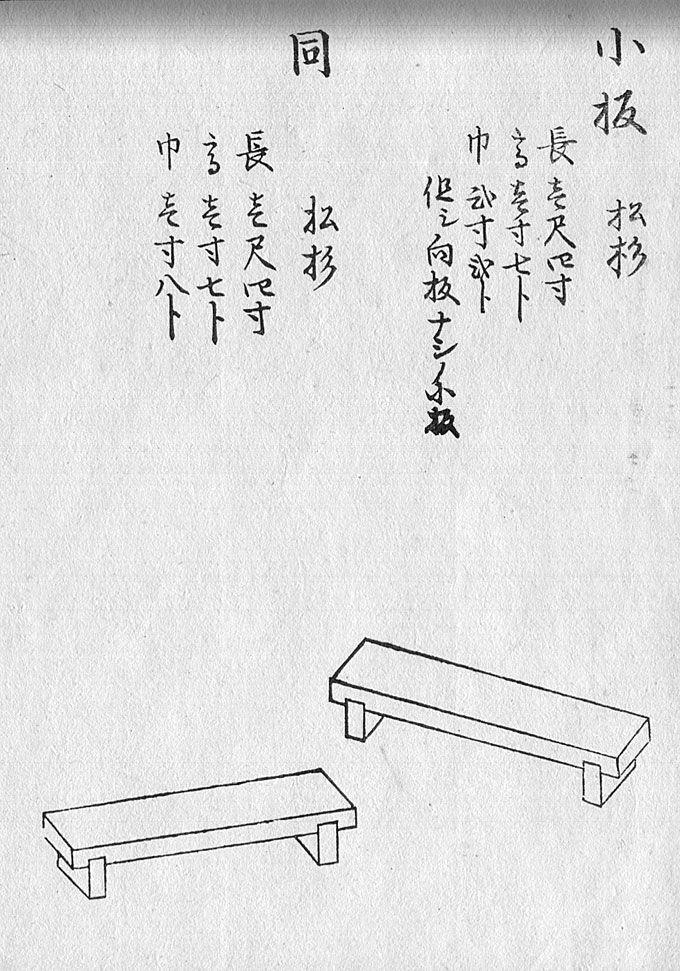 小板 松杉
長壱尺四寸
高壱寸七卜
巾弐寸弐卜
但シ向板ナシノ小板
同 松杉
長壱尺四寸
高壱寸七卜
巾壱寸八卜